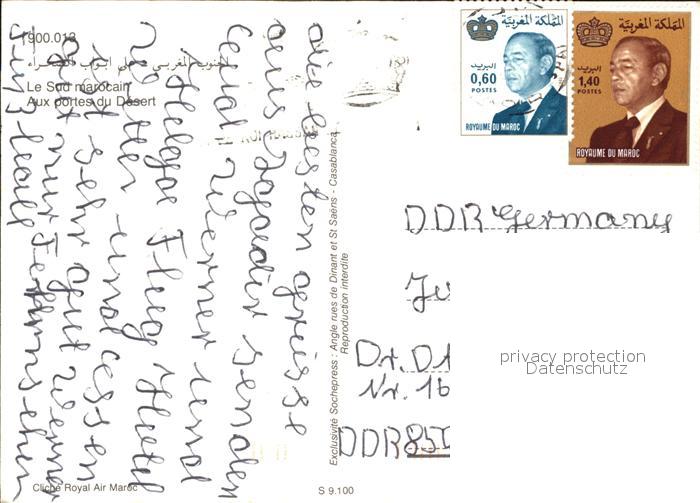 1900.013
الجنوب المغربي - على ابواب الصحراء
Le Sud marocain
Aux portes du Désert
die besten grüsse
aus Agadir senden
Euch Werner und
Helga Flug Hotel
Wetter und essen
ist sehr gut Werner
nur Fernsehen
المملكة المغربية
البريد
0,60
POSTES
ROYAUME DU MAROC
المملكة المغربية
البريد
1,40
POSTES
ROYAUME DU MAROC
Exclusivité Sochepress : Angle rues de Dinant et St Saëns - Casablanca
Reproduction interdite
DDR Germany
Dr. 
Nr. 16
DDR 85
privacy protection
Datenschutz
Cliché Royal Air Maroc
S 9.100